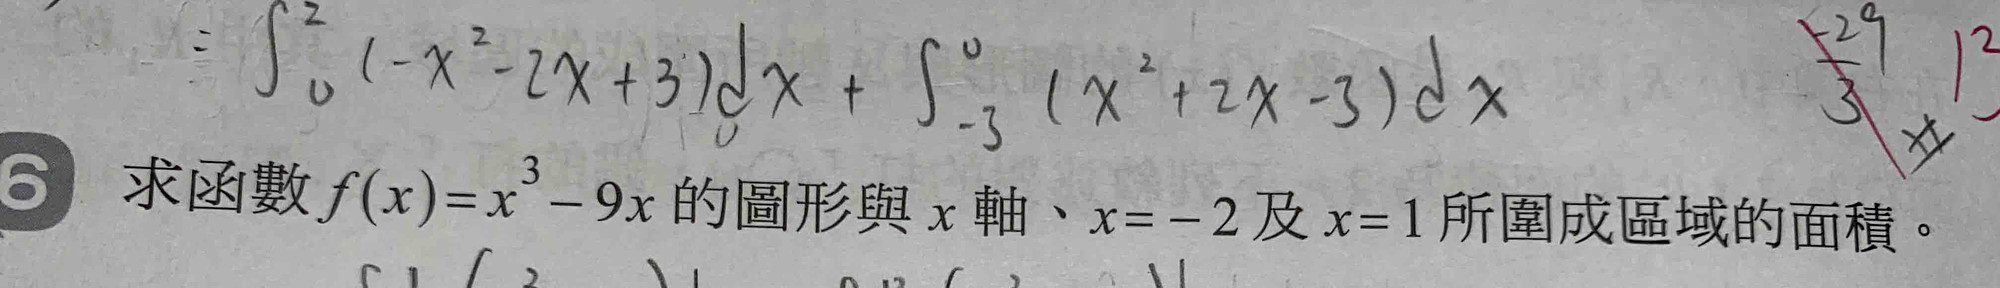 = ∫₀² (-x²-2x+3)dx + ∫₋₃⁰ (x²+2x-3)dx -29/3 13
6 求函數 f(x)=x³-9x 的圖形與 x 軸、x=-2 及 x=1 所圍成區域的面積。